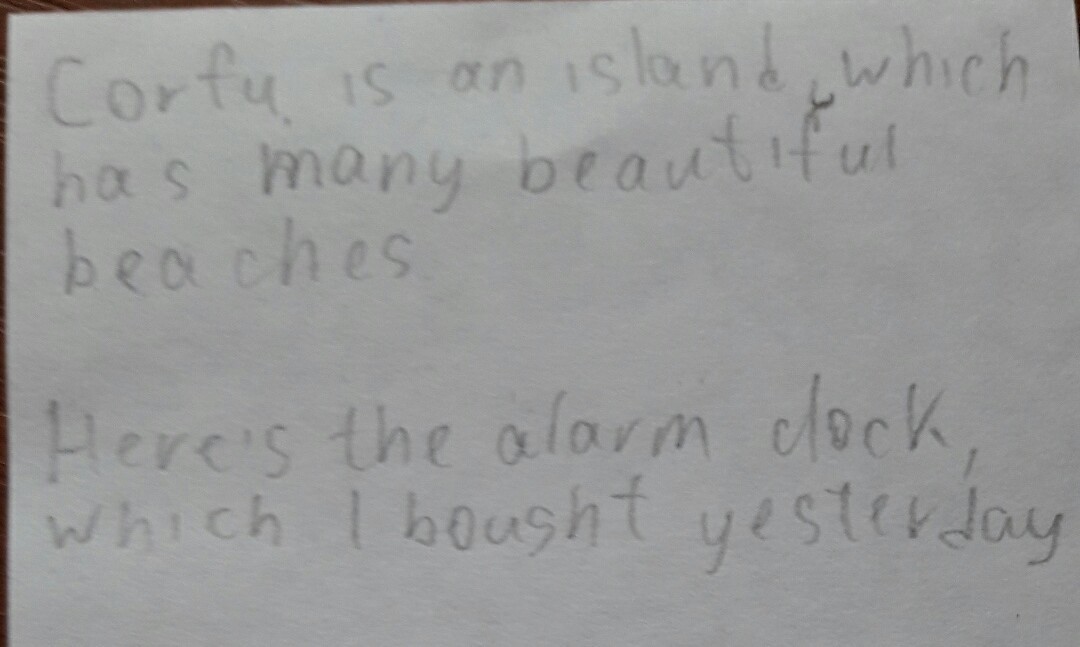 Corfu is an island, which
has many beautiful
beaches
Here's the alarm clock,
which I bought yesterday